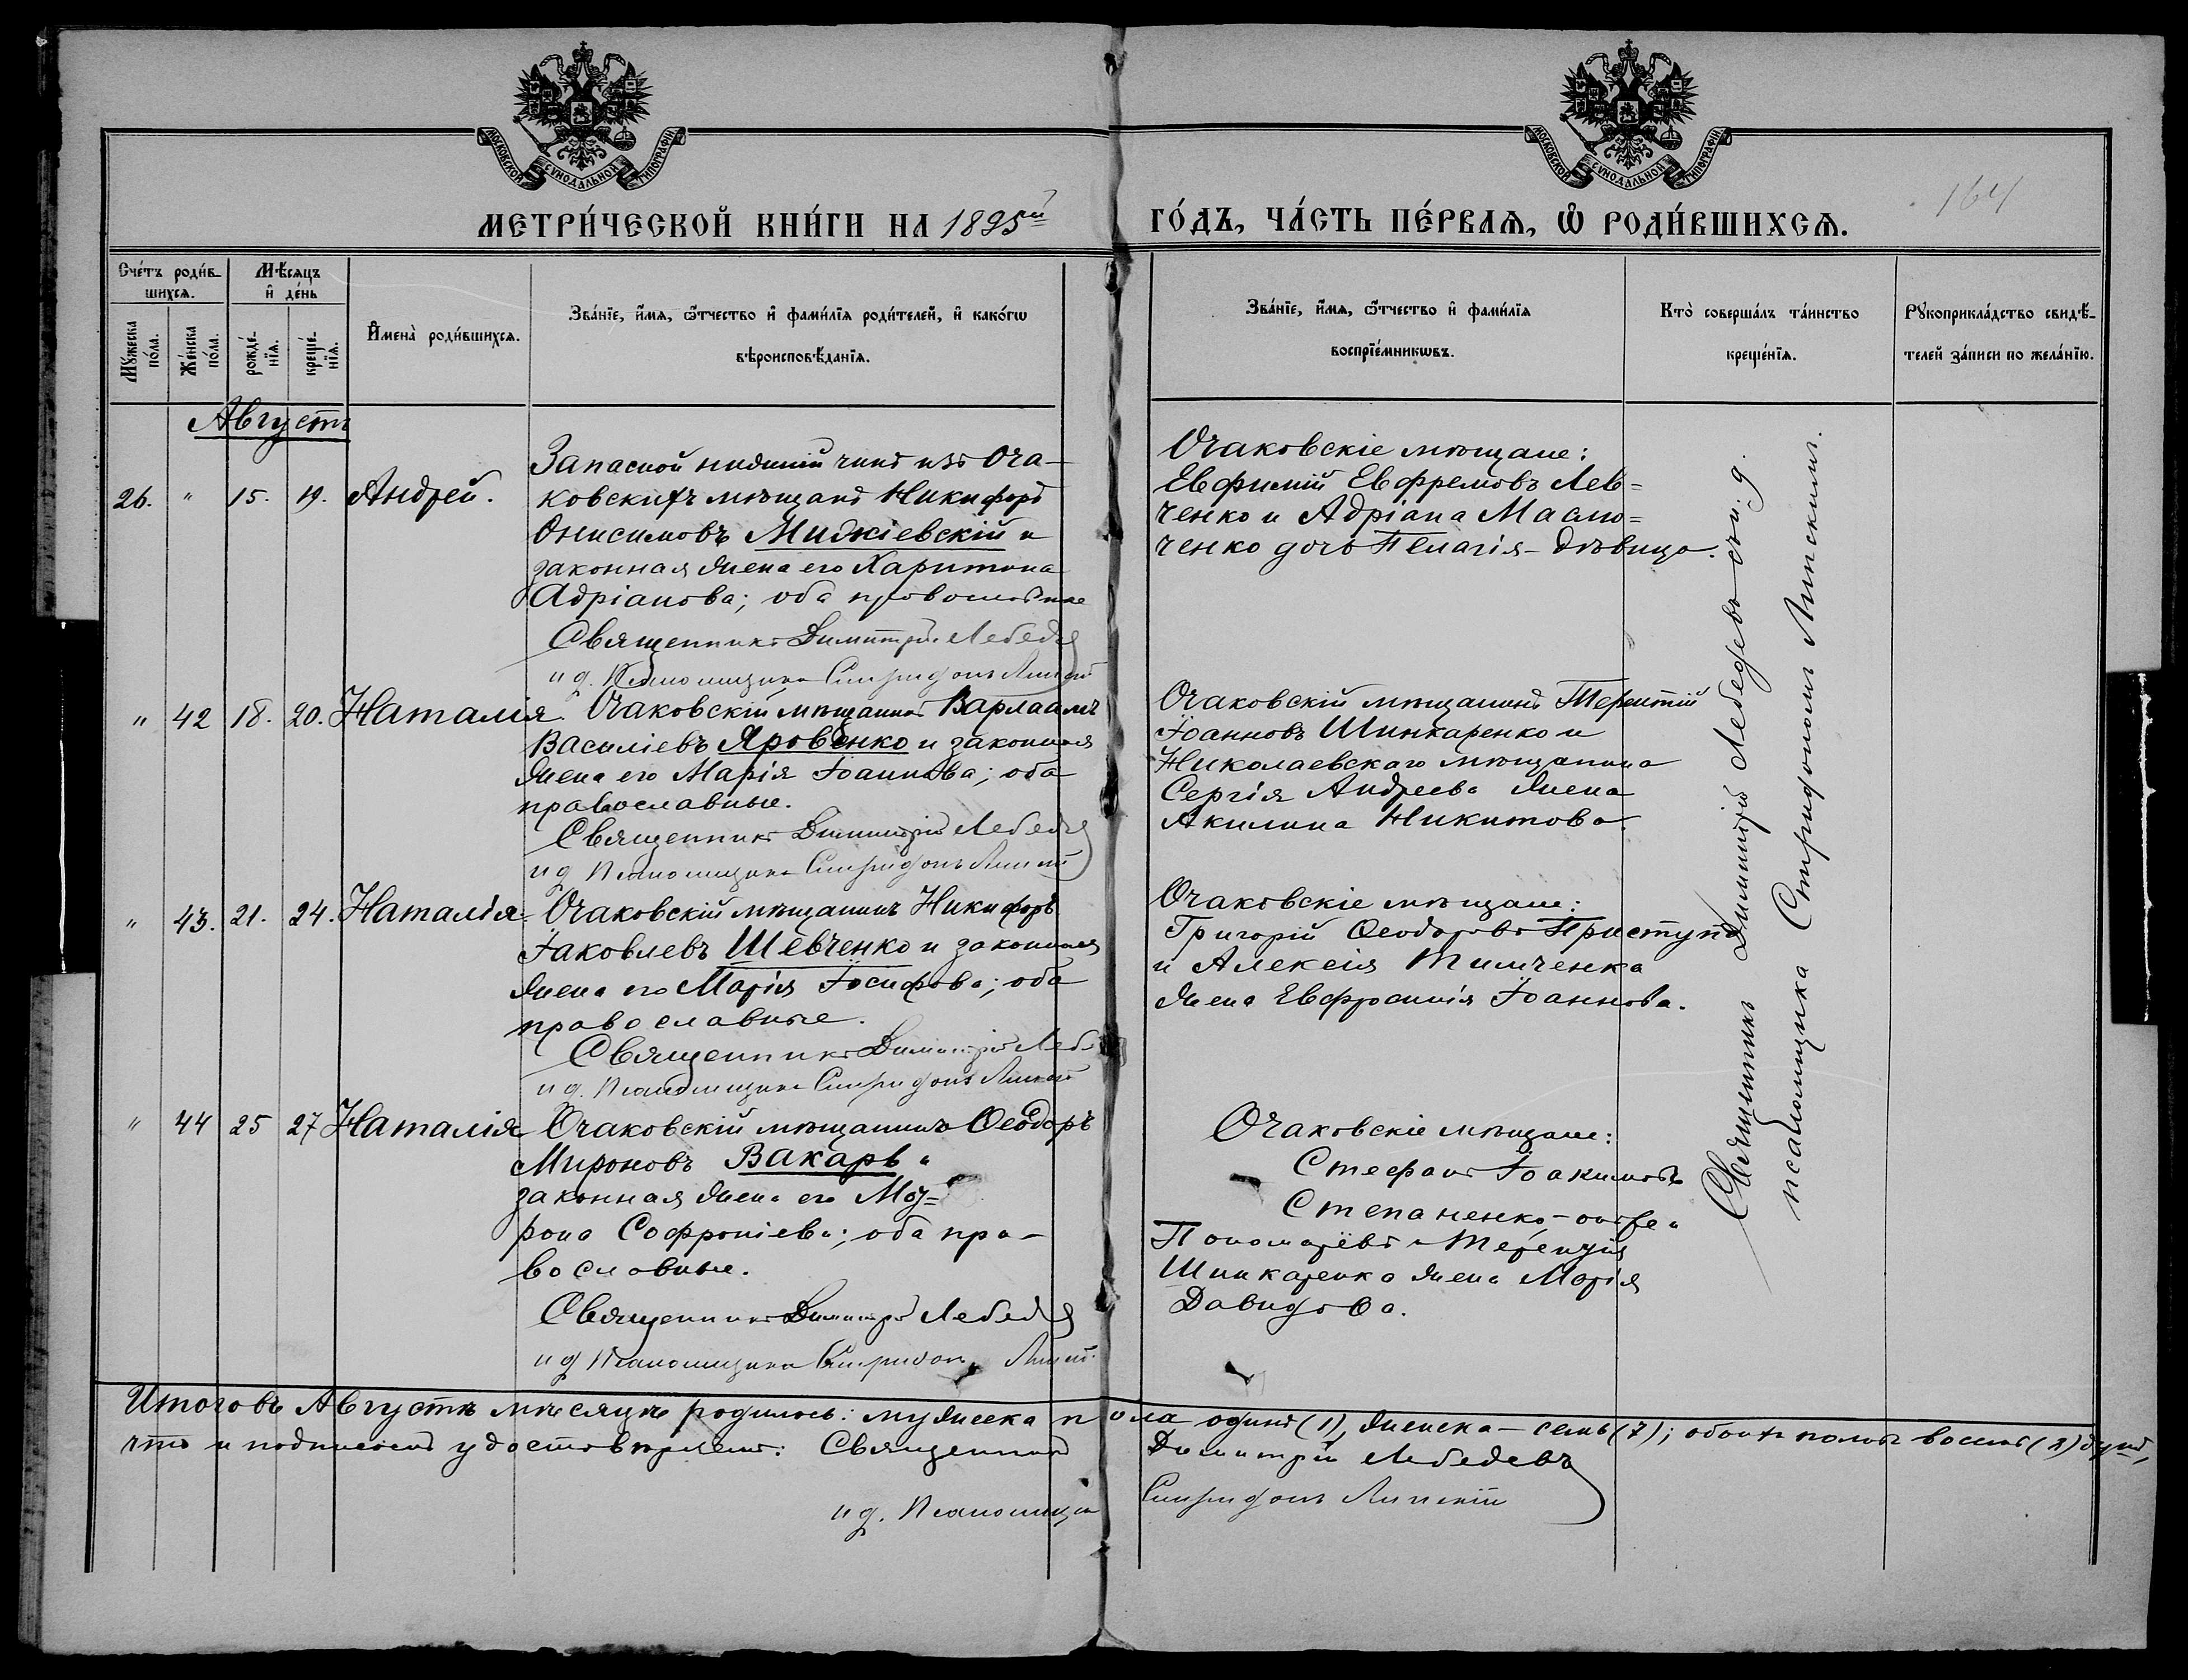 МОСКОВСКОЙ СѴНОДАЛЬНОЙ ТИПОГРАФІИ
МОСКОВСКОЙ СѴНОДАЛЬНОЙ ТИПОГРАФІИ
164
МЕТРИ́ЧЕСКОЙ КНИ́ГИ НА 1895й ГО́ДЪ, ЧА́СТЬ ПЕ́РВАѦ, Ѡ РОДИ́ВШИХСѦ.
Сче́тъ роди́в-
шихсѧ.
Мꙋжеска пола.
Же́нска по́ла.
Мѣ́сяцъ
и де́нь
рожде́-
нїѧ.
креще́-
нїѧ.
Имена̀ роди́вшихсѧ.
Зва́нїе, и́мѧ, ѻ́тчество и фами́лїѧ роди́телей, и како́гѡ
вѣроисповѣ́данїѧ.
Зва́нїе, и́мѧ, ѻ́тчество и фами́лїѧ
воспрїе́мникѡвъ.
Кто̀ соверша́лъ та́инство
креще́нїѧ.
Рꙋкоприкла́дство свидѣ́-
телей за́писи по жела́нїю.
Августъ
26. " 15. 19. Андрей.
Запасной нижній чинъ изъ Оча-
ковскихъ мѣщанъ Никифоръ
Онисимовъ Миджіевскій и
законная жена его Харитина
Адріанова; оба православные
Священникъ Димитрій Лебедевъ
и д. Псаломщика Спиридонъ Липскій
Очаковскіе мѣщане:
Евфимій Евфремовъ Лев=
ченко и Адріана Маслю=
ченко дочь Пелагія - дѣвица.
" 42 18. 20. Наталія.
Очаковскій мѣщанинъ Варлаамъ
Василіевъ Яровенко и законная
жена его Марія Іоаннова; оба
православные.
Священникъ Димитрій Лебедевъ
и д Псаломщика Спиридонъ Липскій
Очаковскій мѣщанинъ Терентій
Іоанновъ Шинкаренко и
Николаевскаго мѣщанина
Сергія Андреева жена
Акилина Никитова.
" 43. 21. 24. Наталія.
Очаковскій мѣщанинъ Никифоръ
Іаковлевъ Шевченко и законная
жена его Марія Іосифова; оба
православные.
Священникъ Димитрій Лебе
и д. Псаломщика Спиридонъ Липскій
Очаковскіе мѣщане:
Григорій Ѳеодоровъ Приступа
и Алексія Тимченка
жена Евфросинія Іоаннова.
" 44 25 27 Наталія
Очаковскій мѣщанинъ Ѳеодоръ
Мироновъ Вакарь и
законная жена его Мат=
рона Софроніева; оба пра-
вославные.
Священникъ Димитрій Лебедевъ
и д Псаломщика Спиридонъ Липскій.
Очаковскіе мѣщане:
Стефанъ Іоакимовъ
Степаненко,
Пономарёвъ и Терентія
Шинкаренка жена Марія
Давидова.
Священникъ Димитрій Лебедевъ съ и. д.
псаломщика Спиридономъ Липскимъ.
Итого въ Августѣ мѣсяцѣ родилось: мужеска пола одинъ (1), женска - семь (7); обоихъ половъ восемь (8) душъ,
что и подписомъ удостовѣряемъ: Священникъ Димитрій Лебедевъ
и д. Псаломщика Спиридонъ Липскій